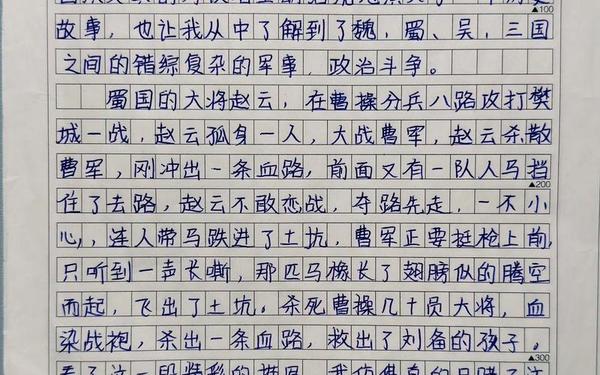 ▲100
故事，也让我从中了解到了魏，蜀、吴，三国
之间的错综复杂的军事，政治斗争。
蜀国的大将赵云，在曹操分兵八路攻打樊
城一战，赵云孤身一人，大战曹军，赵云杀散
曹军，刚冲出一条血路，前面又有一队人马挡
▲200
住了去路，赵云不敢恋战，夺路先走，一不小
心，连人带马跌进了土坑，曹军正要挺枪上前，
只听到一声长嘶，那匹马橡长了翅膀似的腾空
而起，飞出了土坑。杀死曹操几十员大将，血
染战袍，杀出一条血路，救出了刘备的孩子。
▲300
看了这一段精彩的描写，我仿佛真的目睹了这